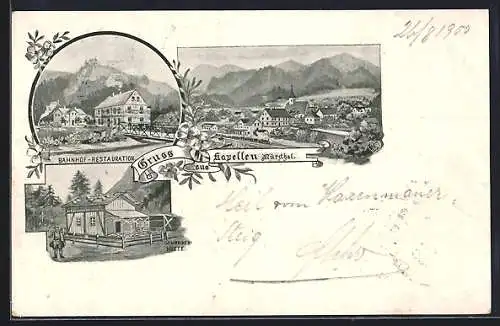 26/8 1900
BAHNHOF-RESTAURATION
Gruss aus Kapellen Mürzthal.
HÜTTE
Heil vom Haxenmäuer
Steig